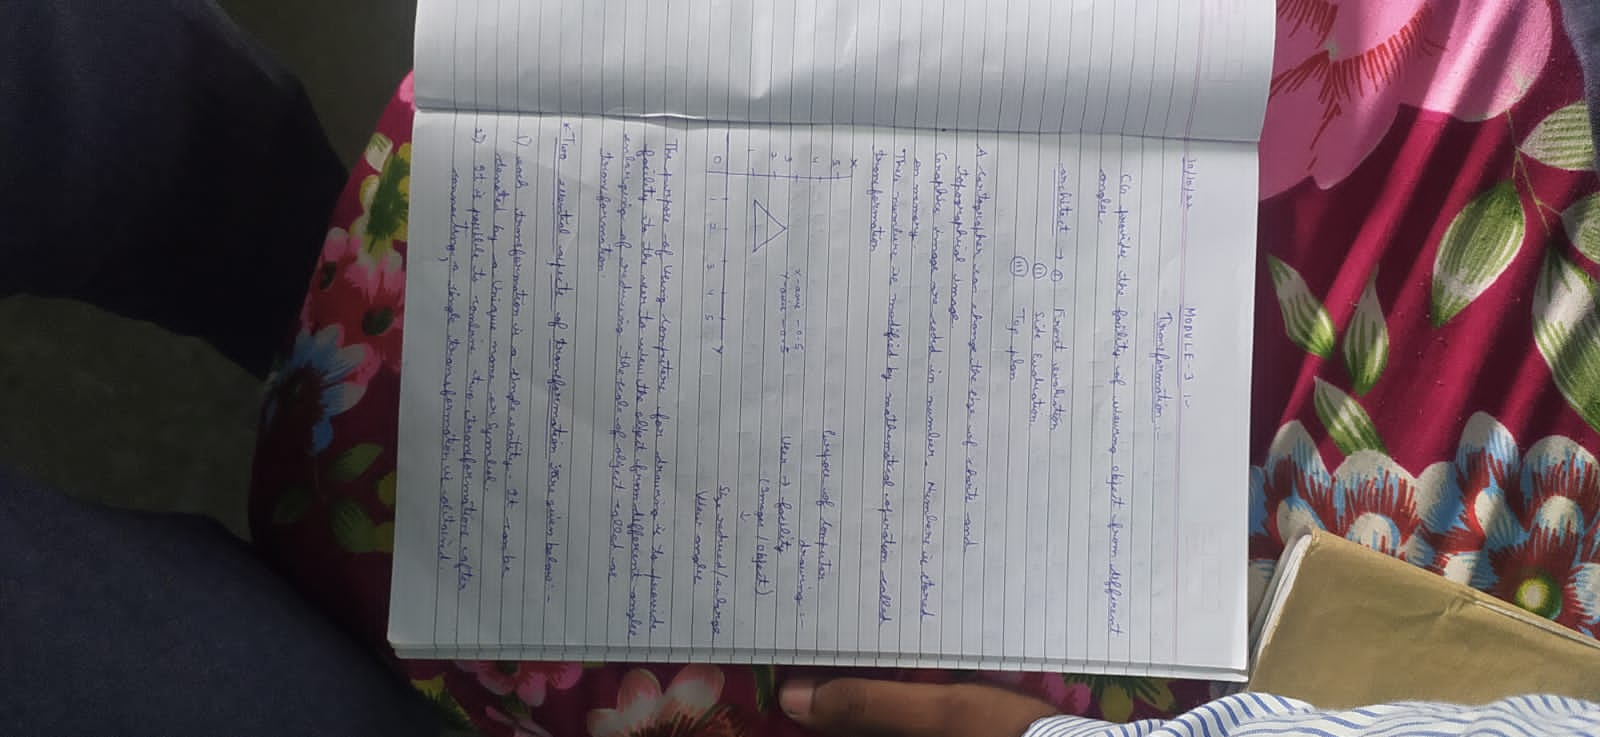 10/10/22
MODULE-3 :-
Transformation :-
CG provide the facility of viewing object from different
angles.
architect → (I) Front evalution
(II) Side Evaluation
(III) Top plan
A Cartographer can change the size of charts and
topographical image
Graphics image are coded in number. Numbers is stored
on memory
This numbers is modified by mathematical operation called
transformation
x
5
4
3
2
1
0
1 2 3 4 5 y
x-axis → 0.5
y-axis → 0.5
Purpose of Computer
drawing :-
User → facility
(Images / object)
↓
Size reduced/enlarge
View angles
The purpose of Using computers for drawing is to provide
facility to the user to view the object from different angles
enlarging of reducing the scale of object called as
transformation.
* Two essential aspects of transformation is are given below :-
1) each transformation is a single entity. It can be
denoted by a Unique name or Symbol.
2) It is possible to combine two transformations after
connecting a single transformation is obtained.